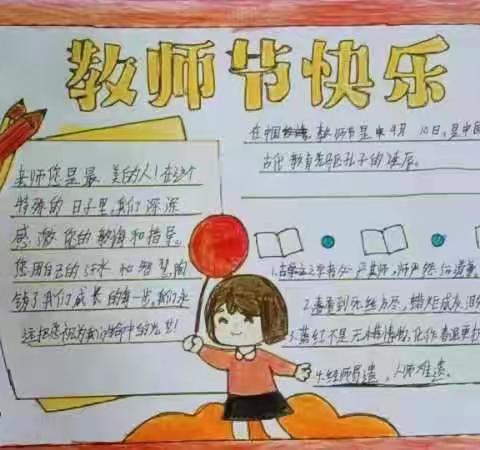 教师节快乐
老师您是最美的人!在这个
特殊的日子里,我们深深
感激您的教诲和指导。
您用自己的汗水和智慧,陶
铸了我们成长的每一步,我们永
远把您视为我们心中的
在中国 教师节是 9月10日,是中国
古代教育 孔子的诞辰。
1.古学之 严其师,师严然后道尊
2.春蚕到死丝方尽,蜡炬成灰泪
3.落红不是无情物,化作春泥更护
4.经师易遇,人师难遇。